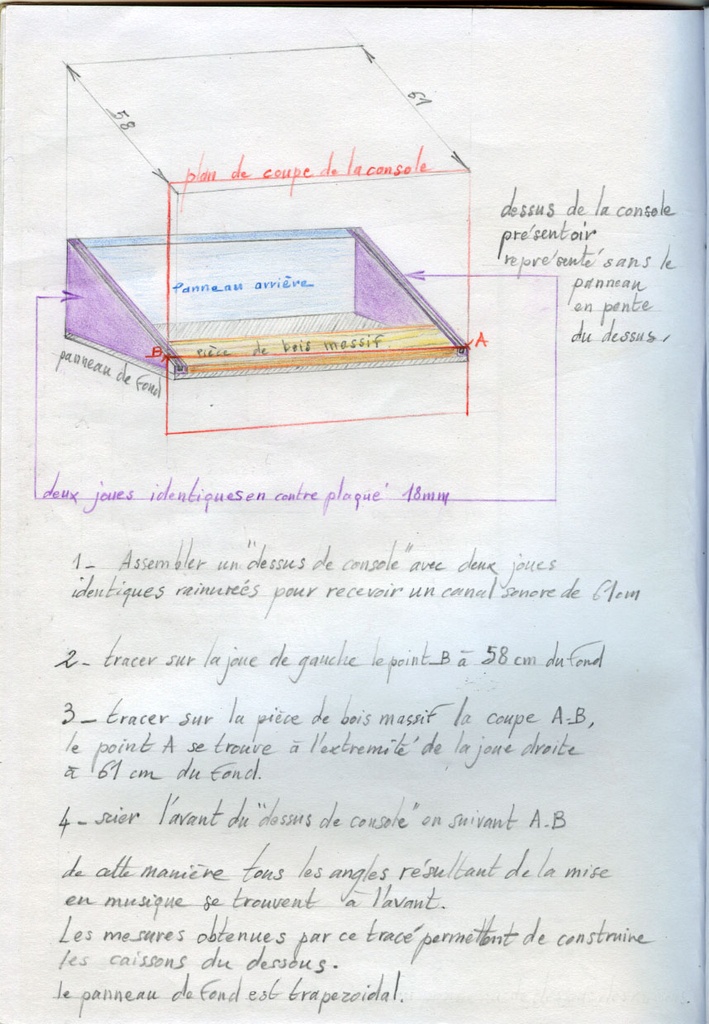 58
61
plan de coupe de la console
dessus de la console
présentoir
représenté sans le
panneau
en pente
du dessus.
Panneau arrière
B
pièce de bois massif
A
panneau de Fond
deux joues identiques en contre plaqué 18mm
1- Assembler un "dessus de console" avec deux joues
identiques rainurées pour recevoir un canal sonore de 61cm
2- tracer sur la joue de gauche le point B à 58 cm du Fond
3- tracer sur la pièce de bois massif la coupe A-B,
le point A se trouve à l'extremité de la joue droite
à 61 cm du Fond.
4- scier l'avant du "dessus de console" en suivant A-B
de cette manière tous les angles résultant de la mise
en musique se trouvent à l'avant.
Les mesures obtenues par ce tracé permettent de construire
les caissons du dessous.
le panneau de Fond est trapezoidal.